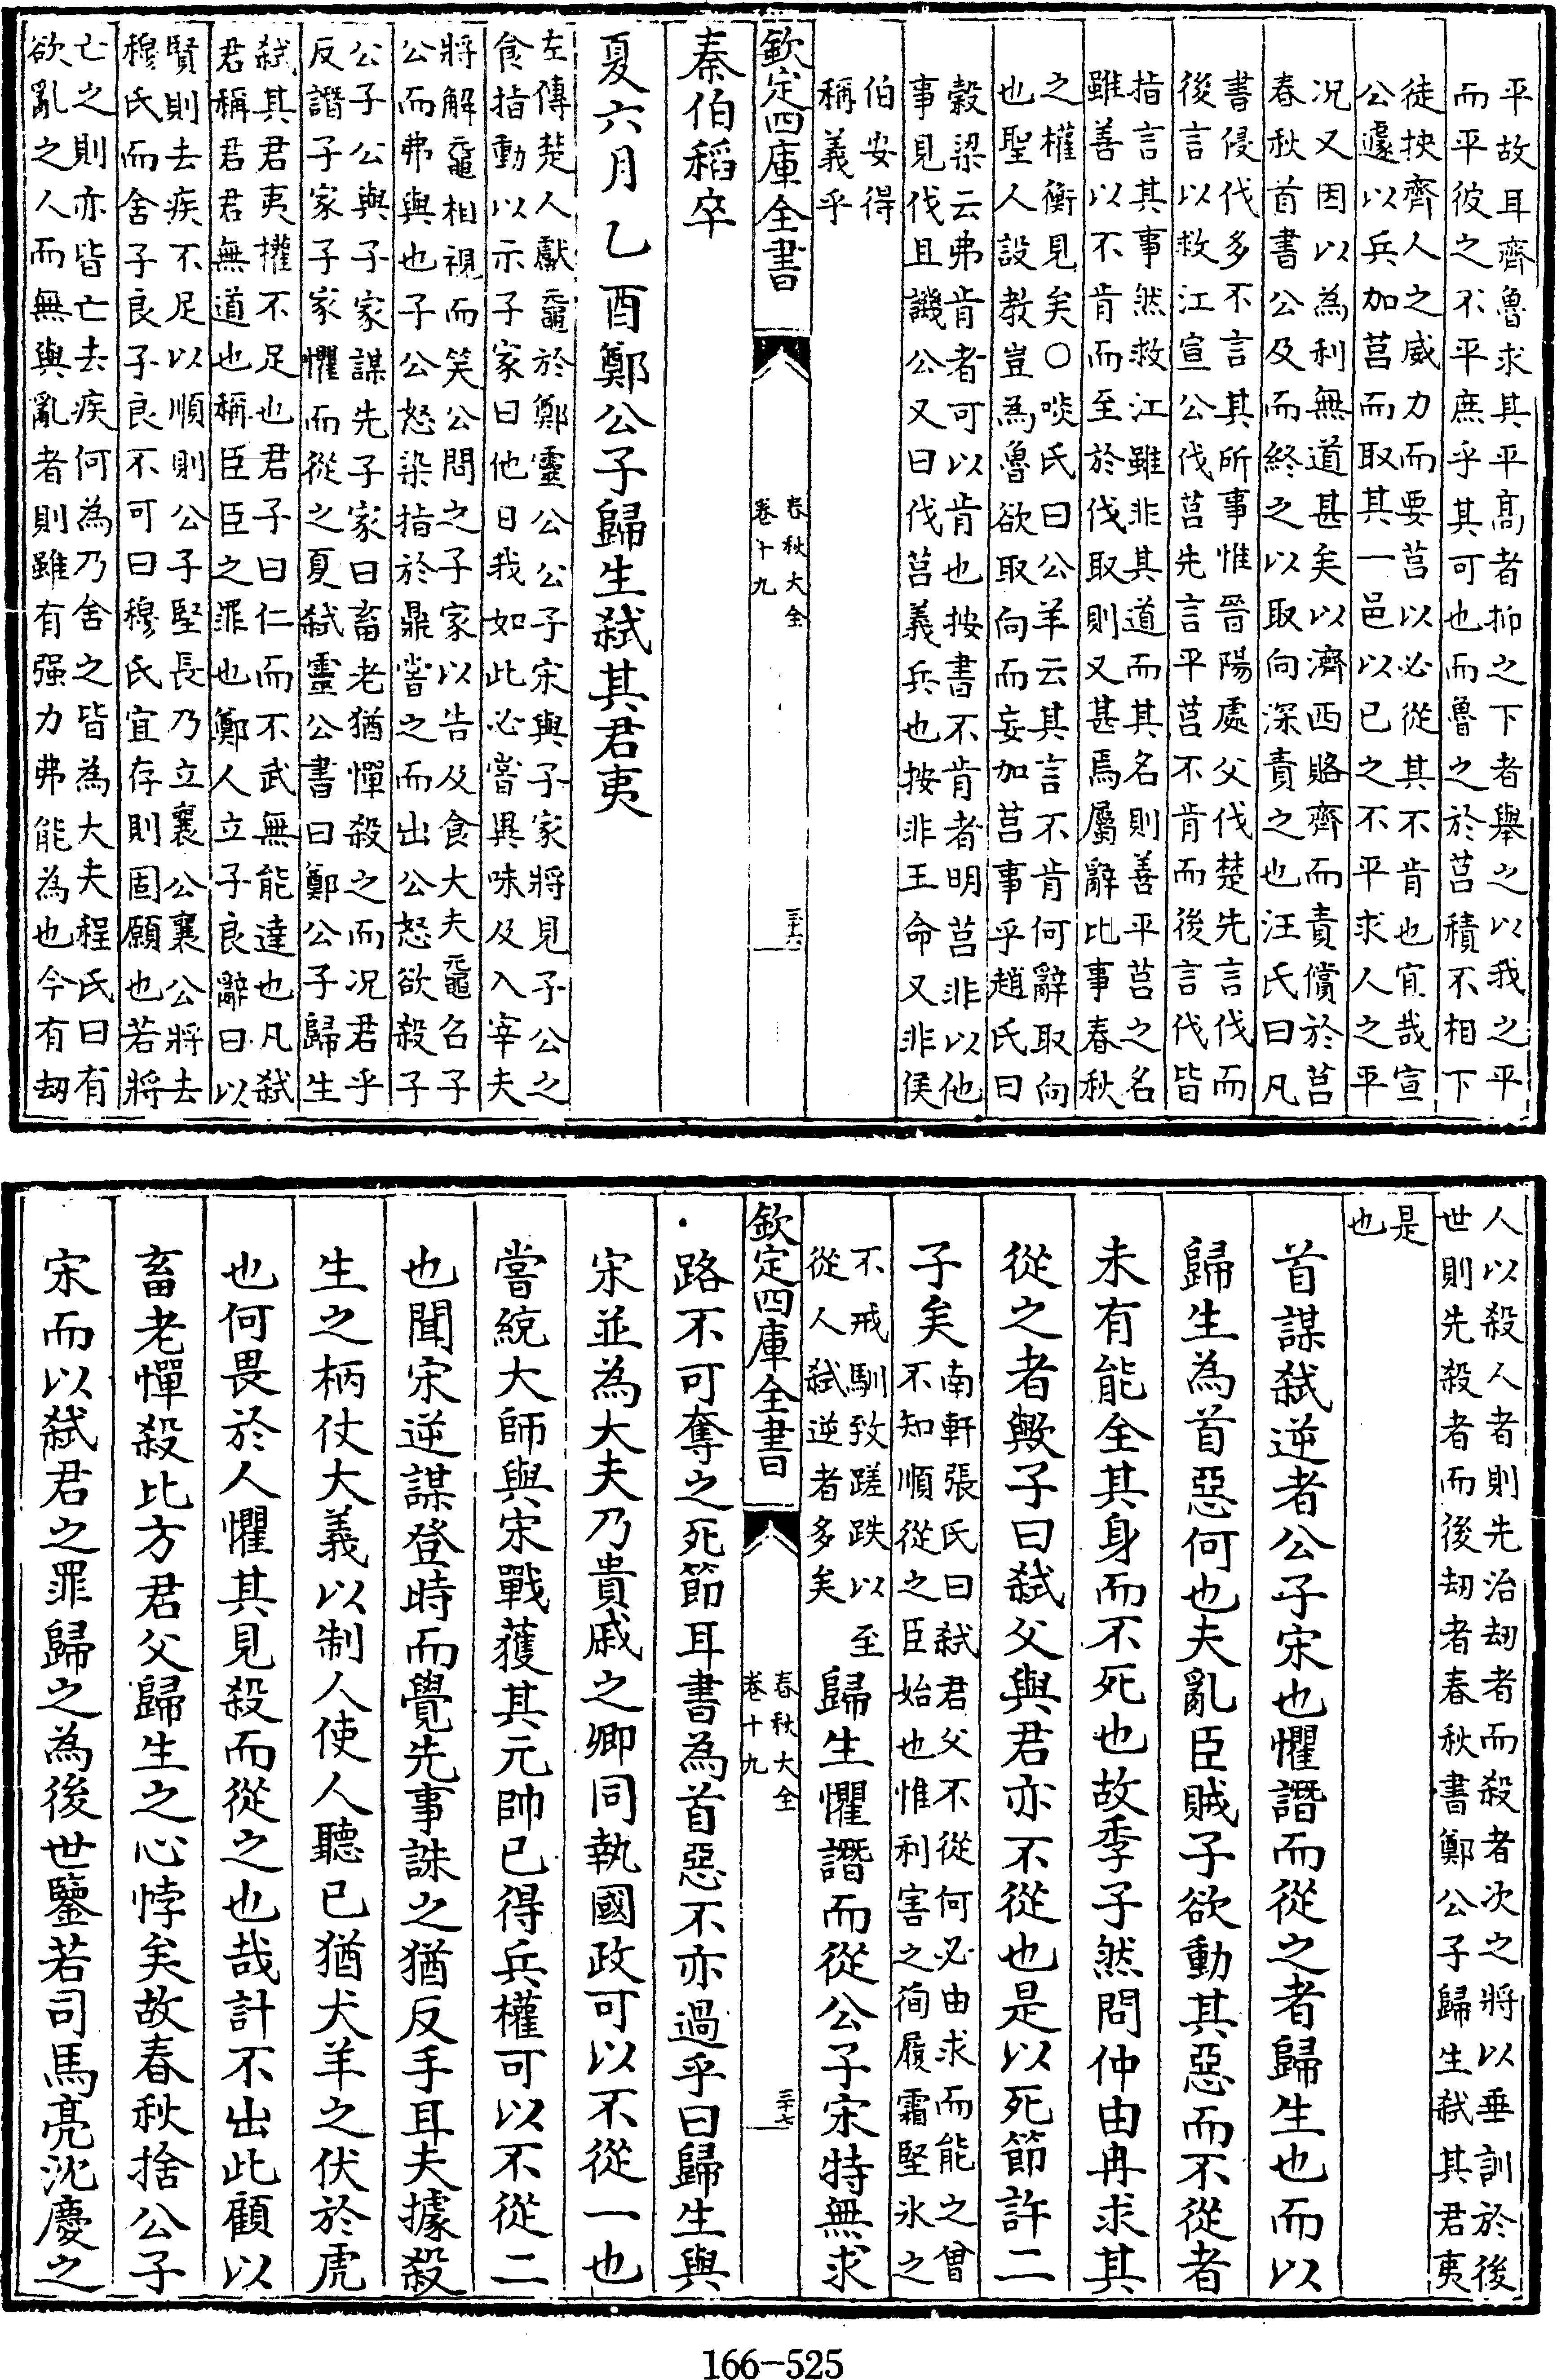 平故耳齊魯求其平髙者抑之下者舉之以我之平
而平彼之不平庶乎其可也而魯之於莒積不相下
徒挾齊人之威力而要莒以必從其不肯也宜哉宣
公遽以兵加莒而取其一邑以已之不平求人之平
况又因以為利無道甚矣以濟西賂齊而責償於莒
春秋首書公及而終之以取向深責之也汪氏曰凡
書侵伐多不言其所事惟晉陽處父伐楚先言伐而
後言以救江宣公伐莒先言平莒不肯而後言伐皆
指言其事然救江雖非其道而其名則善平莒之名
雖善以不肯而至於伐取則又甚焉屬辭比事春秋
之權衡見矣○啖氏曰公羊云其言不肯何辭取向
也聖人設教豈為魯欲取向而妄加莒事乎趙氏曰
穀梁云弗肯者可以肯也按書不肯者明莒非以他
事見伐且譏公又曰伐莒義兵也按非王命又非侯
伯安得
稱義乎
欽定四庫全書
春秋大全
卷十九
三十六
秦伯稻卒
夏六月乙酉鄭公子歸生弒其君夷
左傳楚人獻黿於鄭靈公公子宋與子家將見子公之
食指動以示子家曰他日我如此必嘗異味及入宰夫
將解黿相視而笑公問之子家以告及食大夫黿召子
公而弗與也子公怒染指於鼎嘗之而出公怒欲殺子
公子公與子家謀先子家曰畜老猶憚殺之而况君乎
反譖子家子家懼而從之夏弒靈公書曰鄭公子歸生
弒其君夷權不足也君子曰仁而不武無能達也凡弒
君稱君君無道也稱臣臣之罪也鄭人立子良辭曰以
賢則去疾不足以順則公子堅長乃立襄公襄公將去
穆氏而舍子良子良不可曰穆氏宜存則固願也若將
亡之則亦皆亡去疾何為乃舍之皆為大夫程氏曰有
欲亂之人而無與亂者則雖有强力弗能為也今有刼
人以殺人者則先治刼者而殺者次之將以垂訓於後
世則先殺者而後刼者春秋書鄭公子歸生弒其君夷
是
也
首謀弒逆者公子宋也懼譖而從之者歸生也而以
歸生為首惡何也夫亂臣賊子欲動其惡而不從者
未有能全其身而不死也故季子然問仲由冉求其
從之者歟子曰弒父與君亦不從也是以死節許二
子矣
南軒張氏曰弒君父不從何必由求而能之曾
不知順從之臣始也惟利害之徇履霜堅氷之
不戒馴致蹉跌以至
從人弒逆者多矣
歸生懼譖而從公子宋特無求
欽定四庫全書
春秋大全
卷十九
三十七
路不可奪之死節耳書為首惡不亦過乎曰歸生與
宋並為大夫乃貴戚之卿同執國政可以不從一也
嘗統大師與宋戰獲其元帥已得兵權可以不從二
也聞宋逆謀登時而覺先事誅之猶反手耳夫據殺
生之柄仗大義以制人使人聽已猶犬羊之伏於虎
也何畏於人懼其見殺而從之也哉計不出此顧以
畜老憚殺比方君父歸生之心悖矣故春秋捨公子
宋而以弒君之罪歸之為後世鑒若司馬亮沈慶之
166-525